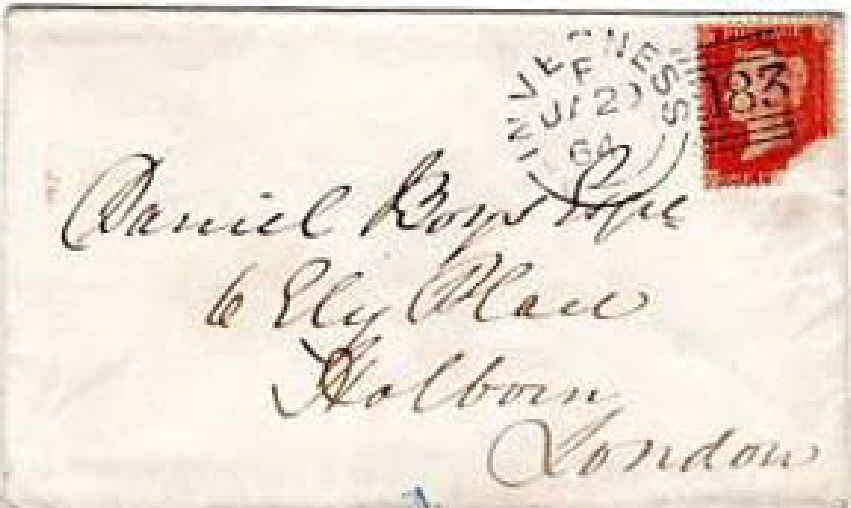 INVERNESS
F
JY 2
64
183
Daniel Boys Esqre
6 Ely Place
Holborn
London